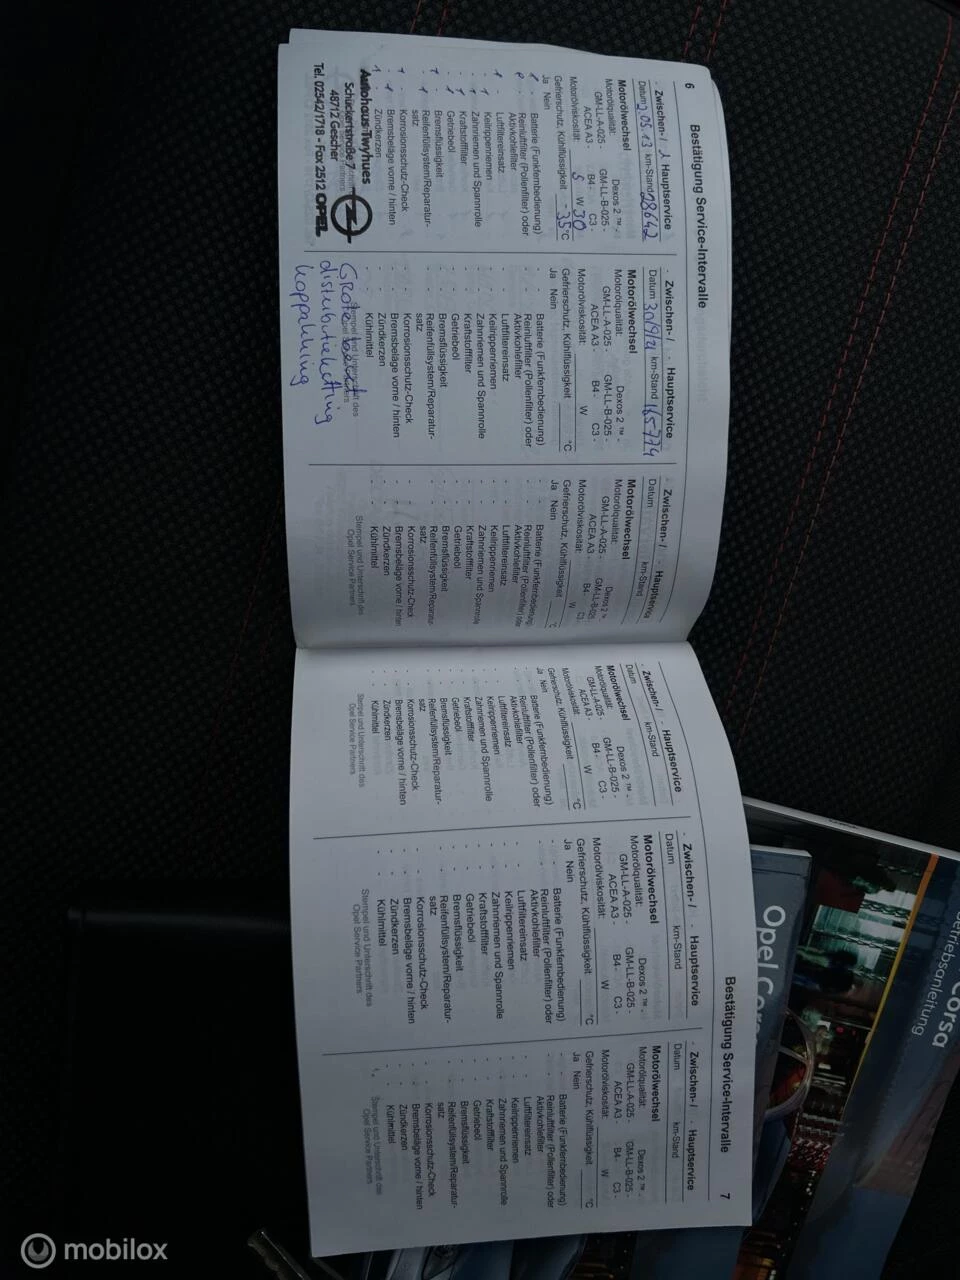 6
Bestätigung Service-Intervalle
- Zwischen- / - Hauptservice
Datum 2.05.13 km-Stand 28642
Motorölwechsel
Motorölqualität: Dexos 2 ™ -
GM-LL-A-025 - GM-LL-B-025 -
ACEA A3 - B4 - C3 -
Motorölviskosität: 5 W 30
Gefrierschutz, Kühlflüssigkeit -35 °C
Ja Nein
Batterie (Funkfernbedienung)
Reinluftfilter (Pollenfilter) oder
Aktivkohlefilter
Luftfiltereinsatz
Keilrippenriemen
Zahnriemen und Spannrolle
Kraftstofffilter
Getriebeöl
Bremsflüssigkeit
Reifenfüllsystem/Reparatur-
satz
Korrosionsschutz-Check
Bremsbeläge vorne / hinten
Zündkerzen
Autohaus Twyhues
Schückertstraße 7
48712 Gescher
Tel. 02542/1718 - Fax 2512 OPEL
- Zwischen- / - Hauptservice
Datum 30/9/21 km-Stand 165774
Motorölwechsel
Motorölqualität: Dexos 2 ™ -
GM-LL-A-025 - GM-LL-B-025 -
ACEA A3 - B4 - C3 -
Motorölviskosität: W
Gefrierschutz, Kühlflüssigkeit °C
Ja Nein
- - Batterie (Funkfernbedienung)
- - Reinluftfilter (Pollenfilter) oder
Aktivkohlefilter
- - Luftfiltereinsatz
- - Keilrippenriemen
- - Zahnriemen und Spannrolle
- - Kraftstofffilter
- - Getriebeöl
- - Bremsflüssigkeit
- - Reifenfüllsystem/Reparatur-
satz
- - Korrosionsschutz-Check
- - Bremsbeläge vorne / hinten
- - Zündkerzen
- - Kühlmittel
Stempel und Unterschrift des
Grote beurt
distributieketting
koppakking
- Zwischen- / - Hauptservice
Datum km-Stand
Motorölwechsel
Motorölqualität: Dexos 2 ™ -
GM-LL-A-025 - GM-LL-B-025 -
ACEA A3 - B4 - C3 -
Motorölviskosität: W
Gefrierschutz, Kühlflüssigkeit °C
Ja Nein
- - Batterie (Funkfernbedienung)
- - Reinluftfilter (Pollenfilter) oder
Aktivkohlefilter
- - Luftfiltereinsatz
- - Keilrippenriemen
- - Zahnriemen und Spannrolle
- - Kraftstofffilter
- - Getriebeöl
- - Bremsflüssigkeit
- - Reifenfüllsystem/Reparatur-
satz
- - Korrosionsschutz-Check
- - Bremsbeläge vorne / hinten
- - Zündkerzen
- - Kühlmittel
Stempel und Unterschrift des
Opel Service Partners
Bestätigung Service-Intervalle
7
- Zwischen- / - Hauptservice
Datum km-Stand
Motorölwechsel
Motorölqualität: Dexos 2 ™ -
GM-LL-A-025 - GM-LL-B-025 -
ACEA A3 - B4 - C3 -
Motorölviskosität: W
Gefrierschutz, Kühlflüssigkeit °C
Ja Nein
- - Batterie (Funkfernbedienung)
- - Reinluftfilter (Pollenfilter) oder
Aktivkohlefilter
- - Luftfiltereinsatz
- - Keilrippenriemen
- - Zahnriemen und Spannrolle
- - Kraftstofffilter
- - Getriebeöl
- - Bremsflüssigkeit
- - Reifenfüllsystem/Reparatur-
satz
- - Korrosionsschutz-Check
- - Bremsbeläge vorne / hinten
- - Zündkerzen
- - Kühlmittel
Stempel und Unterschrift des
Opel Service Partners
- Zwischen- / - Hauptservice
Datum km-Stand
Motorölwechsel
Motorölqualität: Dexos 2 ™ -
GM-LL-A-025 - GM-LL-B-025 -
ACEA A3 - B4 - C3 -
Motorölviskosität: W
Gefrierschutz, Kühlflüssigkeit °C
Ja Nein
- - Batterie (Funkfernbedienung)
- - Reinluftfilter (Pollenfilter) oder
Aktivkohlefilter
- - Luftfiltereinsatz
- - Keilrippenriemen
- - Zahnriemen und Spannrolle
- - Kraftstofffilter
- - Getriebeöl
- - Bremsflüssigkeit
- - Reifenfüllsystem/Reparatur-
satz
- - Korrosionsschutz-Check
- - Bremsbeläge vorne / hinten
- - Zündkerzen
- - Kühlmittel
Stempel und Unterschrift des
Opel Service Partners
- Zwischen- / - Hauptservice
Datum km-Stand
Motorölwechsel
Motorölqualität: Dexos 2 ™ -
GM-LL-A-025 - GM-LL-B-025 -
ACEA A3 - B4 - C3 -
Motorölviskosität: W
Gefrierschutz, Kühlflüssigkeit °C
Ja Nein
- - Batterie (Funkfernbedienung)
- - Reinluftfilter (Pollenfilter) oder
Aktivkohlefilter
- - Luftfiltereinsatz
- - Keilrippenriemen
- - Zahnriemen und Spannrolle
- - Kraftstofffilter
- - Getriebeöl
- - Bremsflüssigkeit
- - Reifenfüllsystem/Reparatur-
satz
- - Korrosionsschutz-Check
- - Bremsbeläge vorne / hinten
- - Zündkerzen
- - Kühlmittel
Stempel und Unterschrift des
Opel Service Partners
Opel Corsa
Corsa
Betriebsanleitung
mobilox